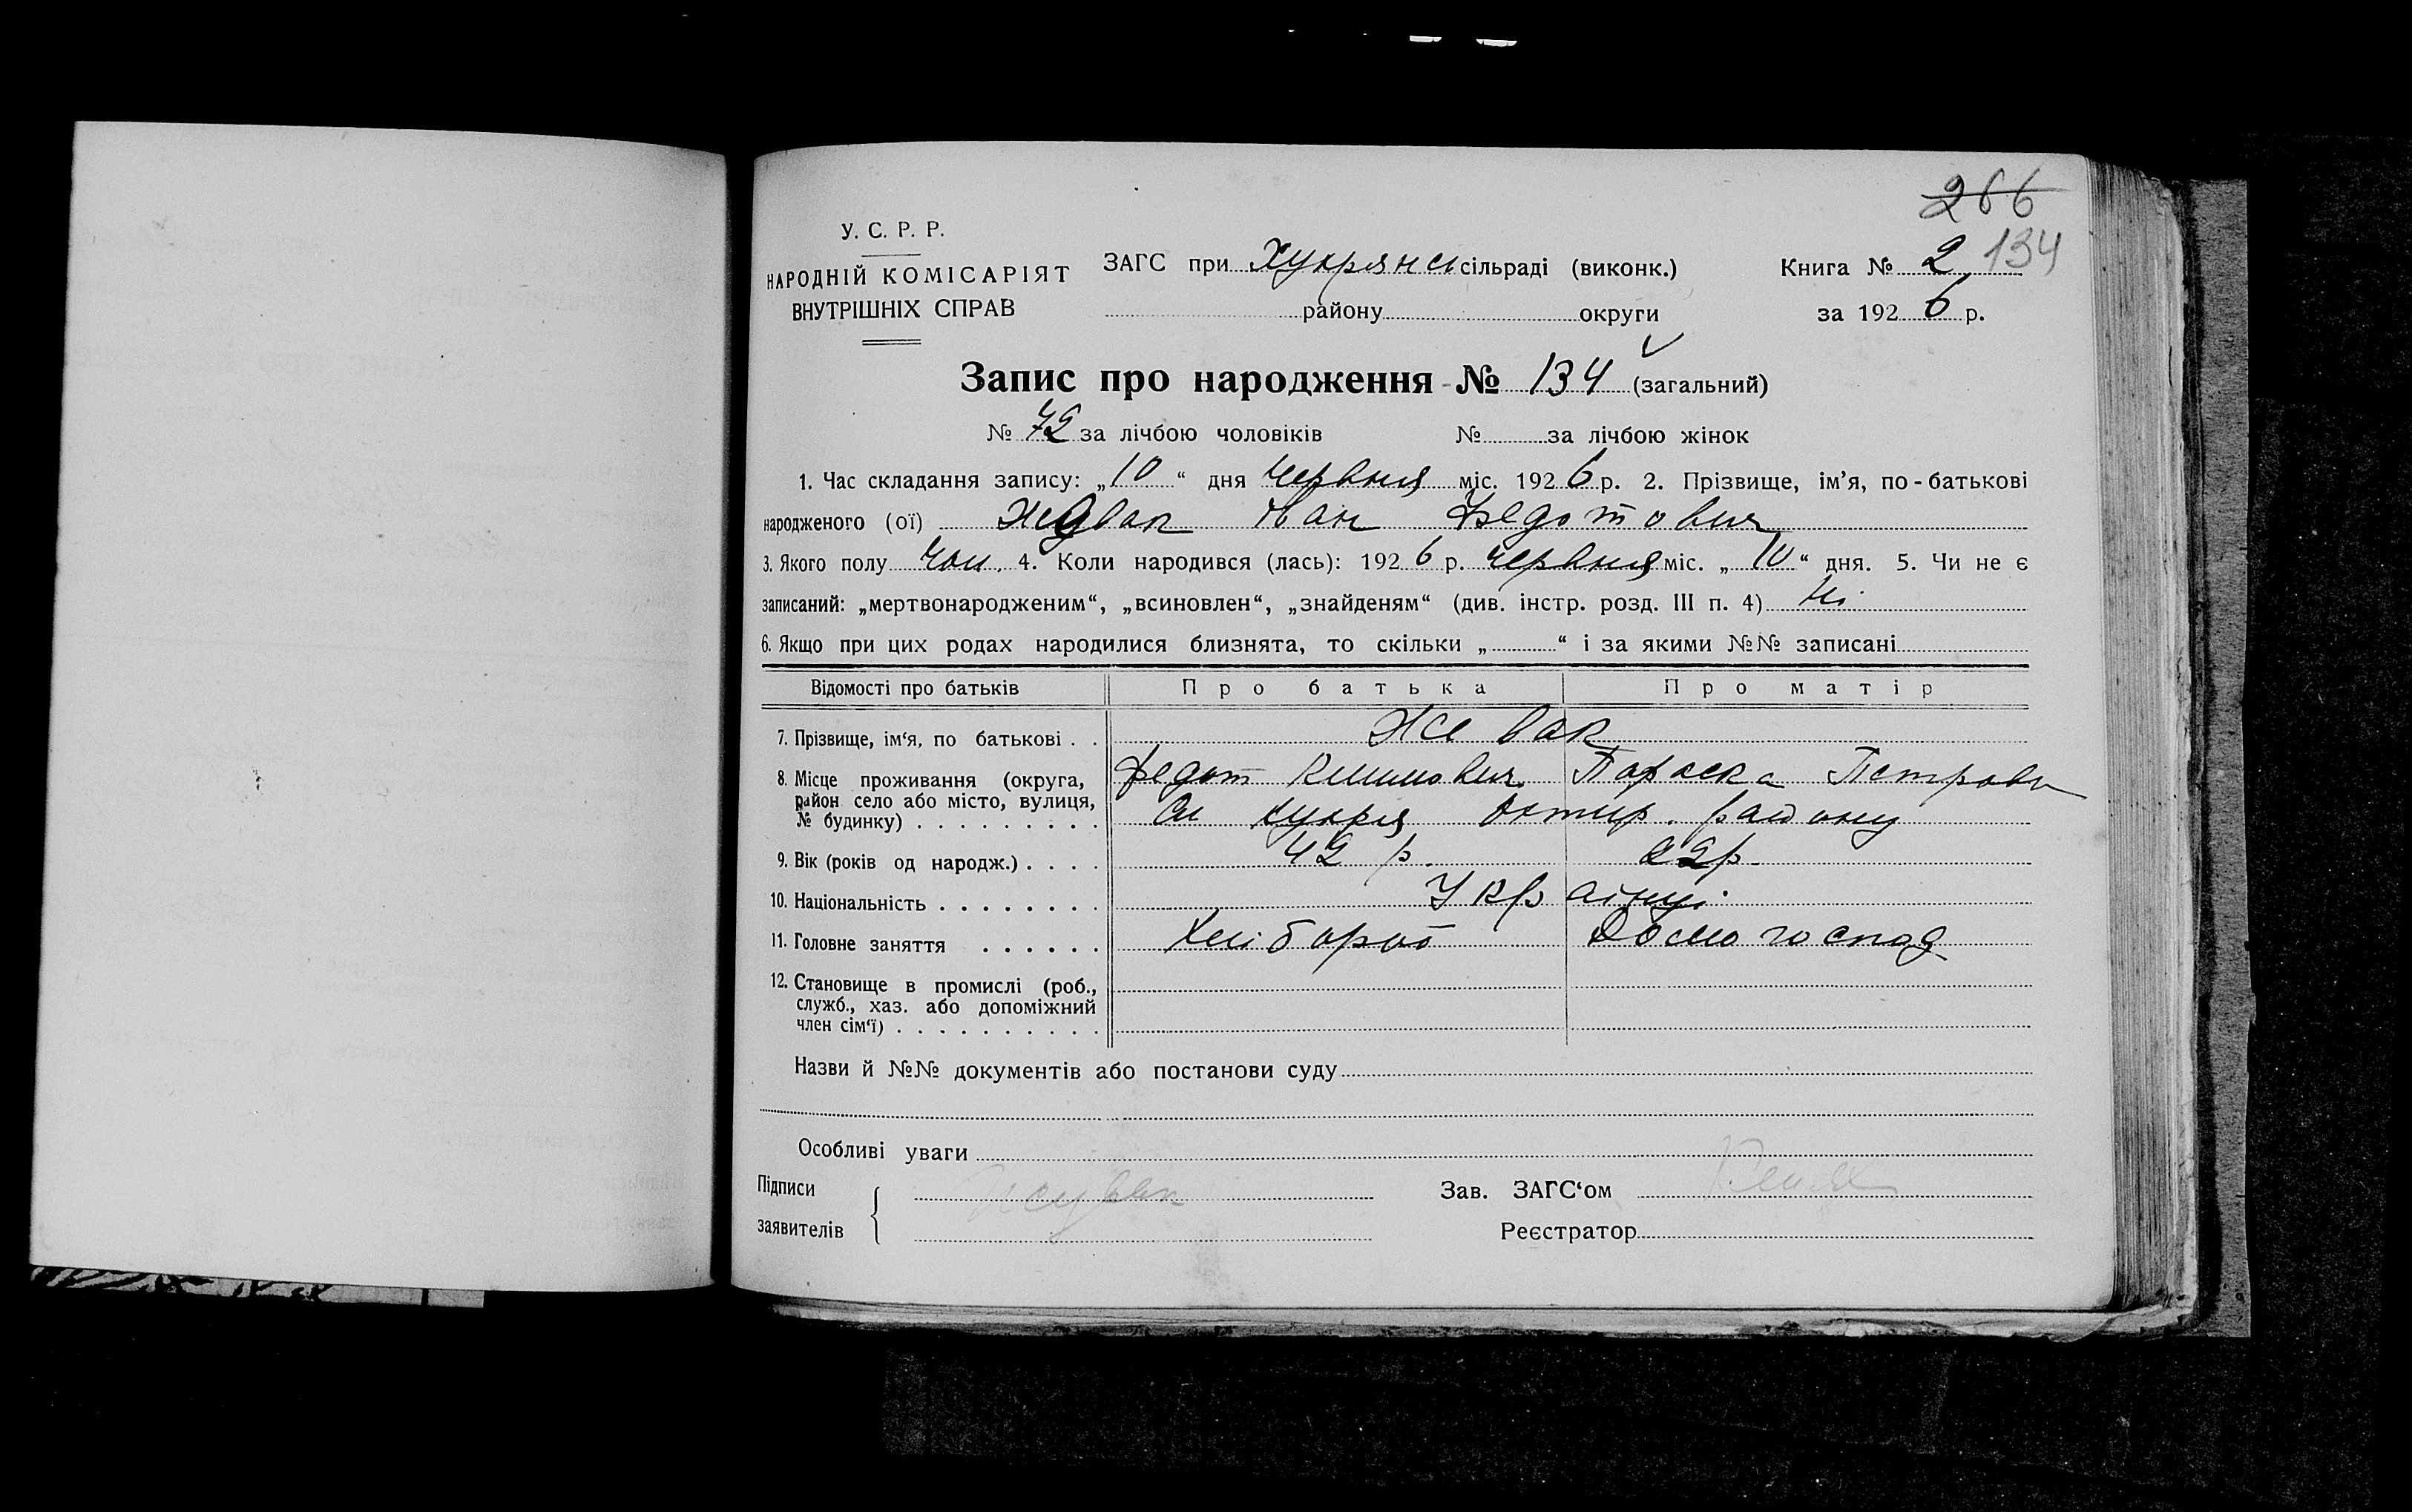 266
134
У. С. Р. Р.
НАРОДНІЙ КОМІСАРІЯТ
ВНУТРІШНІХ СПРАВ
ЗАГС при Хухрянсь сільраді (виконк.)
району округи
Книга № 2
за 1926 р.
Запис про народження № 134 (загальний)
№ 72 за лічбою чоловіків № за лічбою жінок
1. Час складання запису: „10“ дня червня міс. 1926 р. 2. Прізвище, ім’я, по-батькові
народженого (ої) Жевак Іван Федотович
3. Якого полу чол. 4. Коли народився (лась): 1926 р. червня міс. „10“ дня. 5. Чи не є
записаний: „мертвонародженим“, „всиновлен“, „знайденям“ (див. інстр. розд. III п. 4) ні
6. Якщо при цих родах народилися близнята, то скільки „ “ і за якими №№ записані
Відомості про батьків Про батька Про матір
7. Прізвище, ім‘я, по батькові . . Жевак
Федот Климович Параска Петровн
8. Місце проживання (округа, район село або місто, вулиця, № будинку) . . . . . . . . . Сл Хухря Охтир. району
9. Вік (років од народж.) . . . . 42 р. 22р
10. Національність . . . . . . . . Українці
11. Головне заняття . . . . . . Хлібороб Домогоспод
12. Становище в промислі (роб.,
служб., хаз. або допоміжний
член сім‘ї) . . . . . . . . . .
Назви й №№ документів або постанови суду
Особливі уваги
Підписи
заявителів
Зав. ЗАГС‘ом
Реєстратор